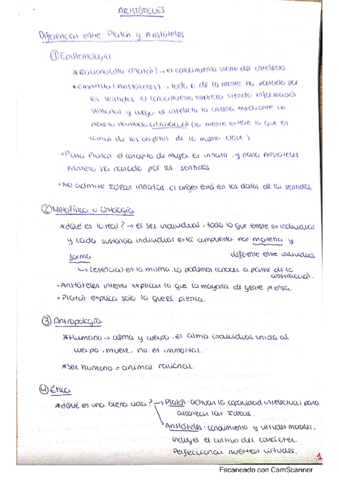 ARISTÓTELES
Diferencias entre Platón y Aristóteles
① Epistemología
* Racionalista (Platón) → el conocimiento viene del intelecto
* Empirista (Aristóteles) → todo lo de la mente ha pasado por
los sentidos. El conocimiento empieza siendo
sensorial y luego el intelecto lo ordena mediante un
proceso llamado abstracción (la mente extrae lo que es
común de los objetos de la misma clase)
• Para Platón el concepto de mujer es innato y para Aristóteles
primero ha pasado por los sentidos.
• No admite ideas innatas el origen está en los datos de los sentidos.
② Metafísica u Ontología
* ¿Qué es lo real? → el ser individual. todo lo que existe es individual
y cada sustancia individual está compuesta por materia y
forma diferente entre individuos
↳ (esencia) es la misma. La podemos conocer a partir de la
abstracción.
• Aristóteles intenta explicar lo que la mayoría de gente piensa.
• Platón explica solo lo que él piensa.
③ Antropología
* Humano → alma y cuerpo. el alma individual unida al
cuerpo, muere, no es inmortal.
* Ser humano → animal racional.
④ Ética
* ¿Qué es una buena vida? → Platón: activar la capacidad intelectual para
alcanzar las Ideas.
→ Aristóteles: conocimiento y virtudes morales,
incluye el cultivo del carácter.
Perfeccionar nuestras virtudes.
1
Escaneado con CamScanner